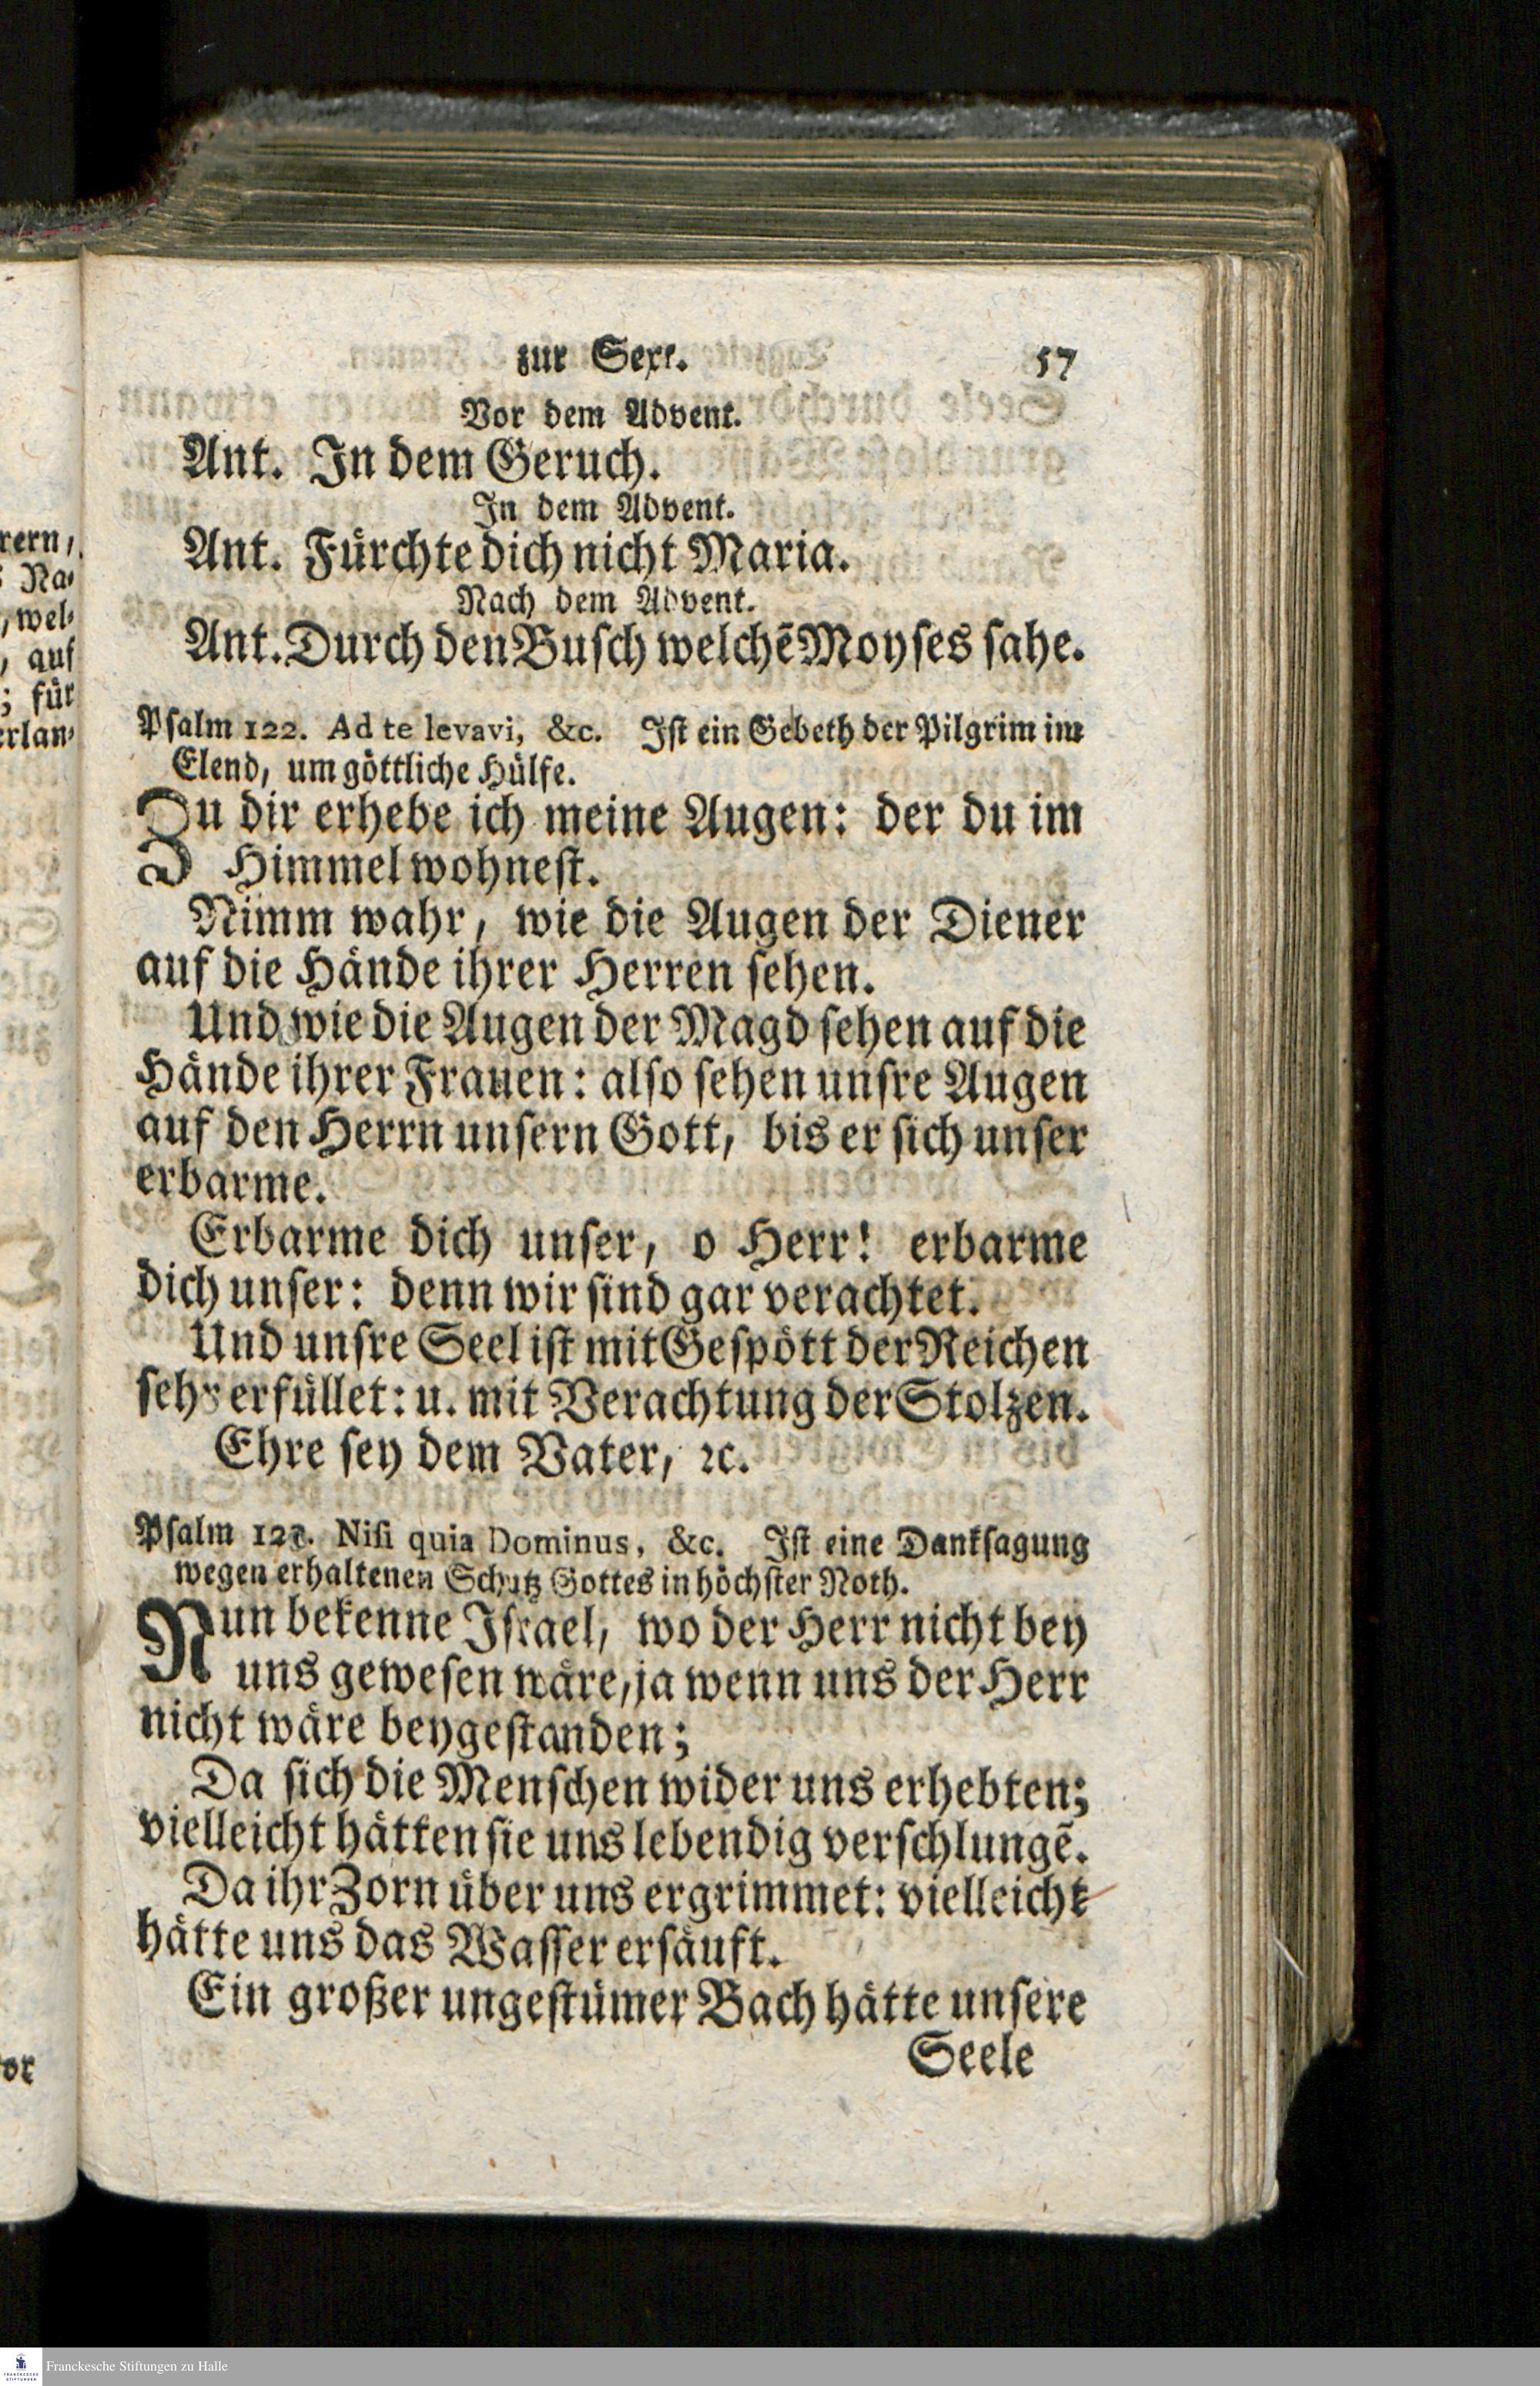 rern,
Na⸗
, wel⸗
, auf
; für
erlan⸗
or
zur Sext. 57
Vor dem Advent.
Ant. In dem Geruch.
In dem Advent.
Ant. Fürchte dich nicht Maria.
Nach dem Advent.
Ant. Durch den Busch welchē Moyses sahe.
Psalm 122. Ad te levavi, &c. Ist ein Gebeth der Pilgrim im
Elend, um göttliche Hülfe.
Zu dir erhebe ich meine Augen: der du im
Himmel wohnest.
Nimm wahr, wie die Augen der Diener
auf die Hände ihrer Herren sehen.
Und wie die Augen der Magd sehen auf die
Hände ihrer Frauen: also sehen unsre Augen
auf den Herrn unsern Gott, bis er sich unser
erbarme.
Erbarme dich unser, o Herr! erbarme
dich unser: denn wir sind gar verachtet.
Und unsre Seel ist mit Gespött der Reichen
sehr erfüllet: u. mit Verachtung der Stolzen.
Ehre sey dem Vater, ꝛc.
Psalm 123. Nisi quia Dominus, &c. Ist eine Danksagung
wegen erhaltenen Schutz Gottes in höchster Noth.
Nun bekenne Israel, wo der Herr nicht bey
uns gewesen wäre, ja wenn uns der Herr
nicht wäre beygestanden;
Da sich die Menschen wider uns erhebten;
vielleicht hätten sie uns lebendig verschlungē.
Da ihr Zorn über uns ergrimmet: vielleicht
hätte uns das Wasser ersäuft.
Ein großer ungestümer Bach hätte unsere
Seele
Franckesche Stiftungen zu Halle